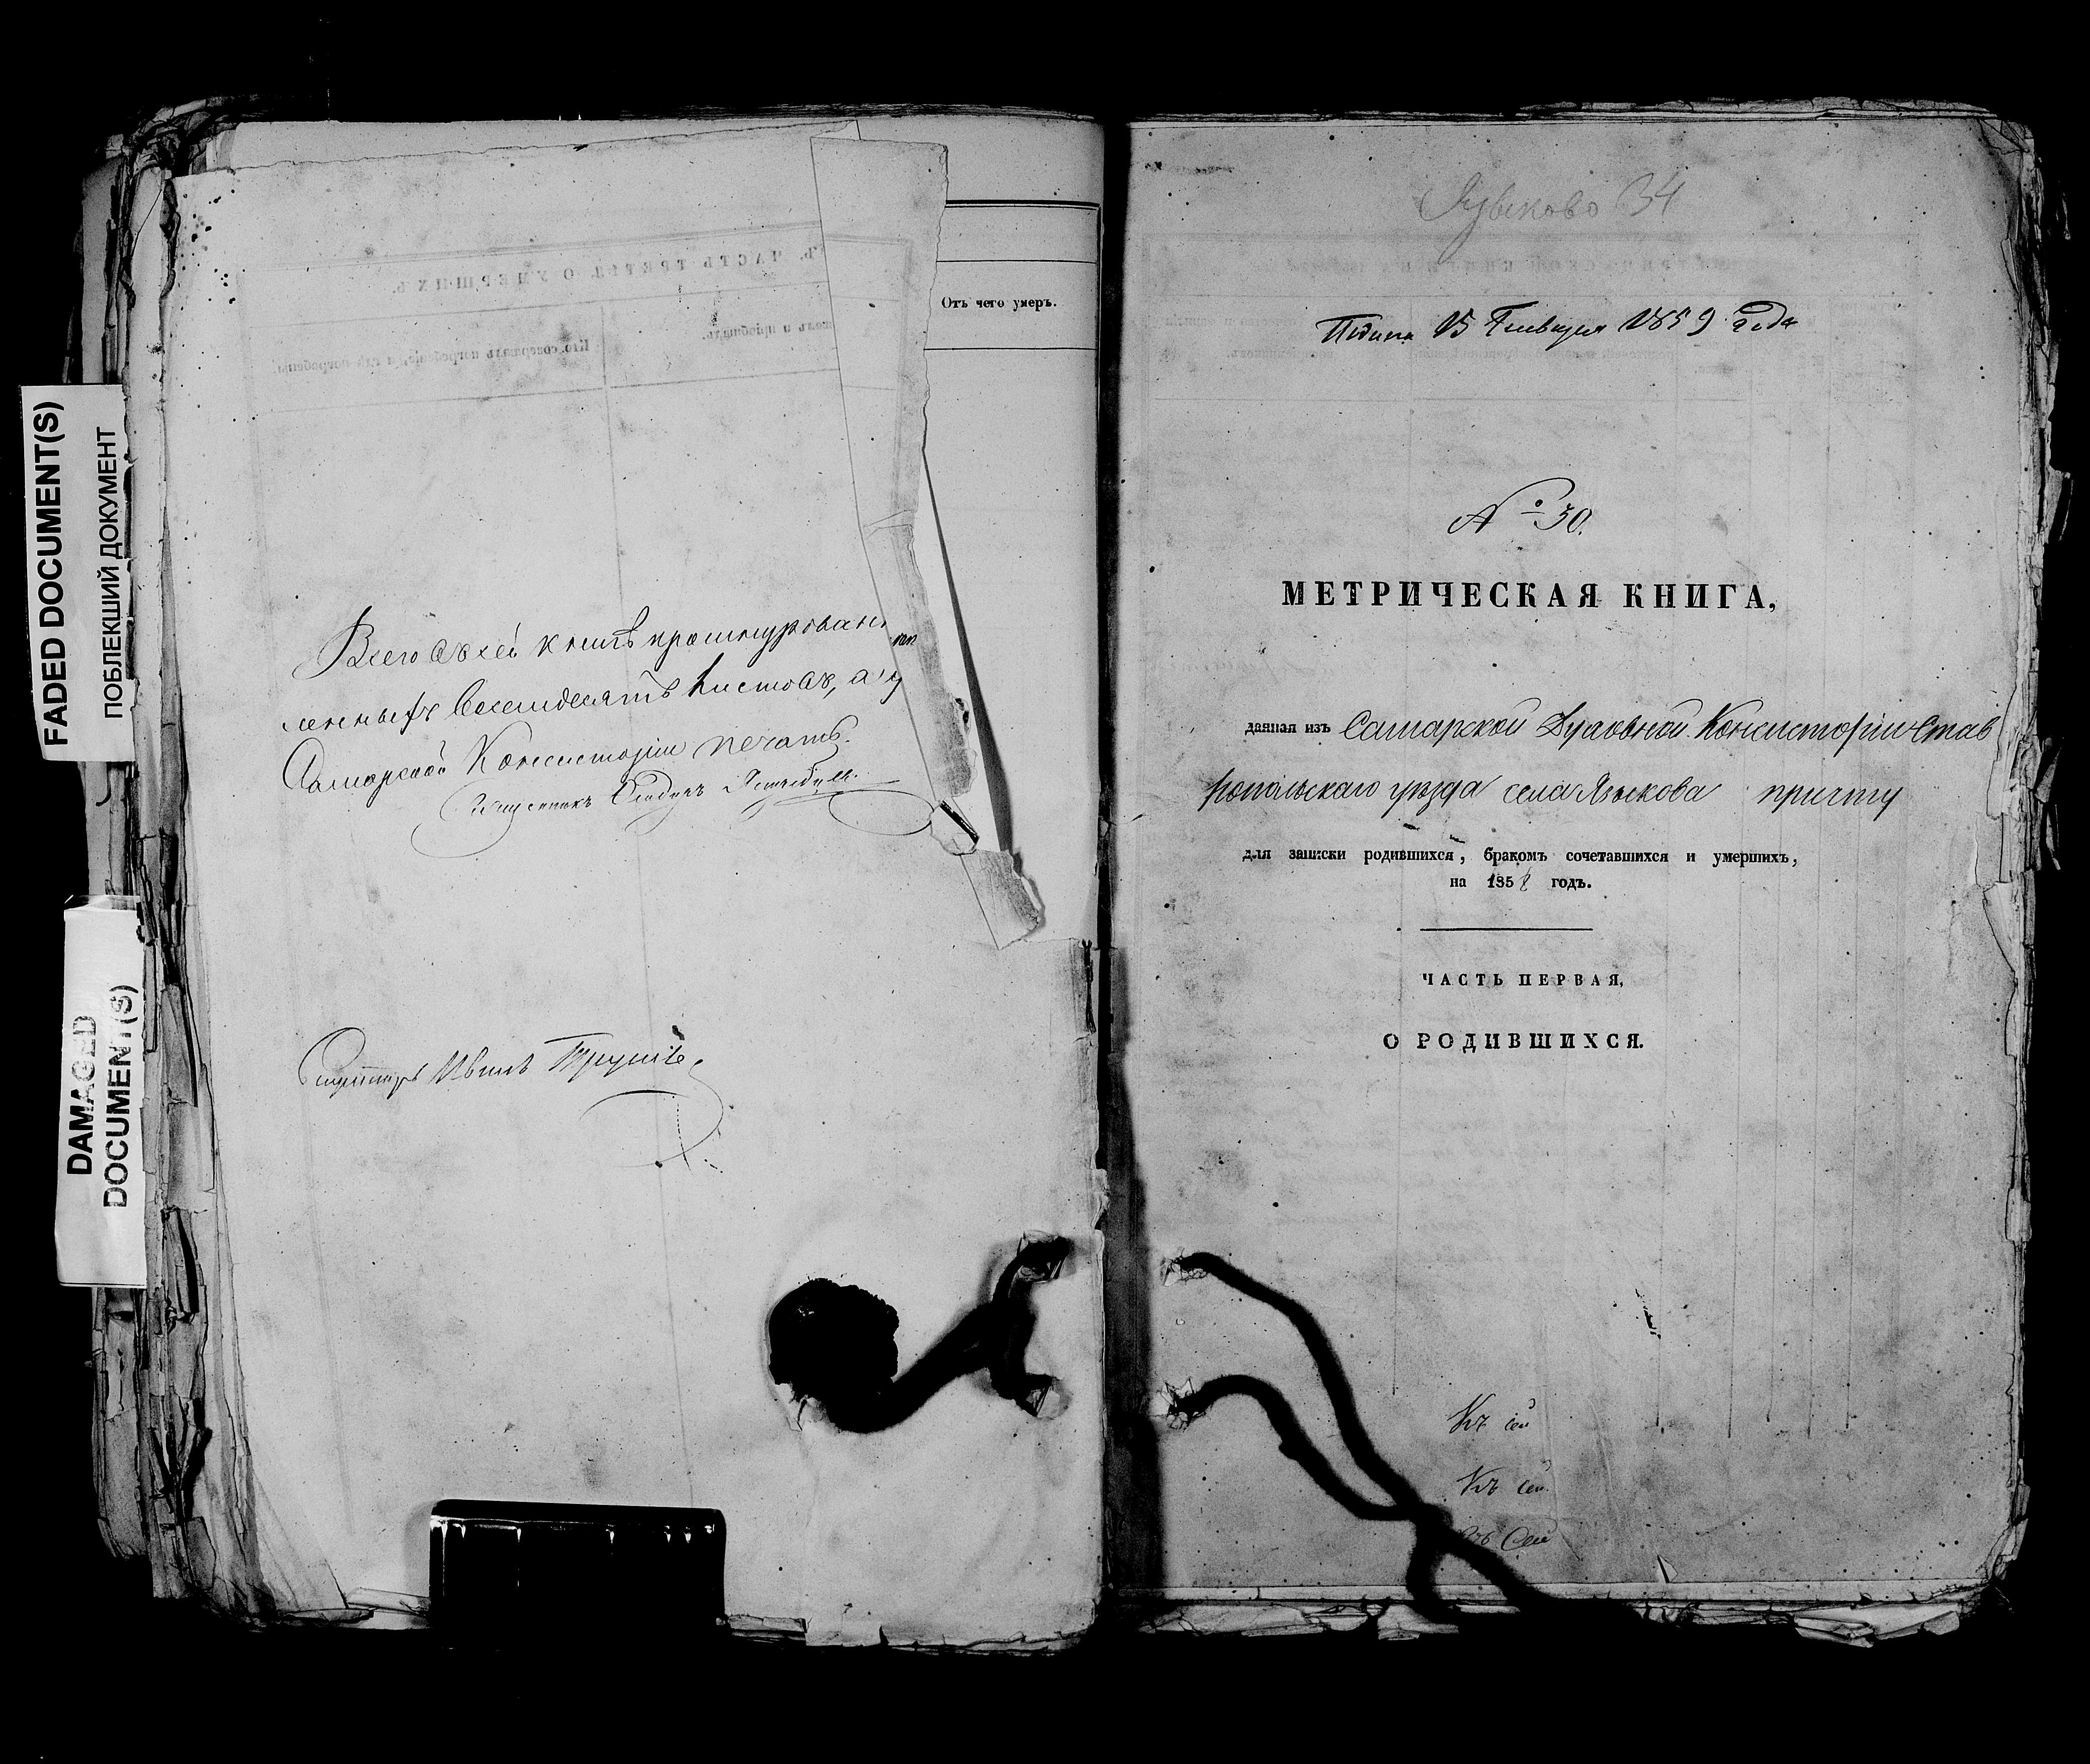 FADED DOCUMENT(S)
ПОБЛЕКШИЙ ДОКУМЕНТ
DAMAGED
DOCUMENT(S)
Отъ чего умеръ.
Всего въ сей книгѣ прошнурован
ленныхъ листовъ, а у
Самарской Консисторіи печать.
Иванъ
Языково 34
15 Генваря 1859 года
№ 30.
МЕТРИЧЕСКАЯ КНИГА,
данная изъ Самарской Духовной Консисторіи Став
ропольскаго уѣзда села Языкова причту
для записки родившихся, бракомъ сочетавшихся и умершихъ,
на 1858 годъ.
ЧАСТЬ ПЕРВАЯ,
О РОДИВШИХСЯ.
Къ сей
Къ сей
Сей